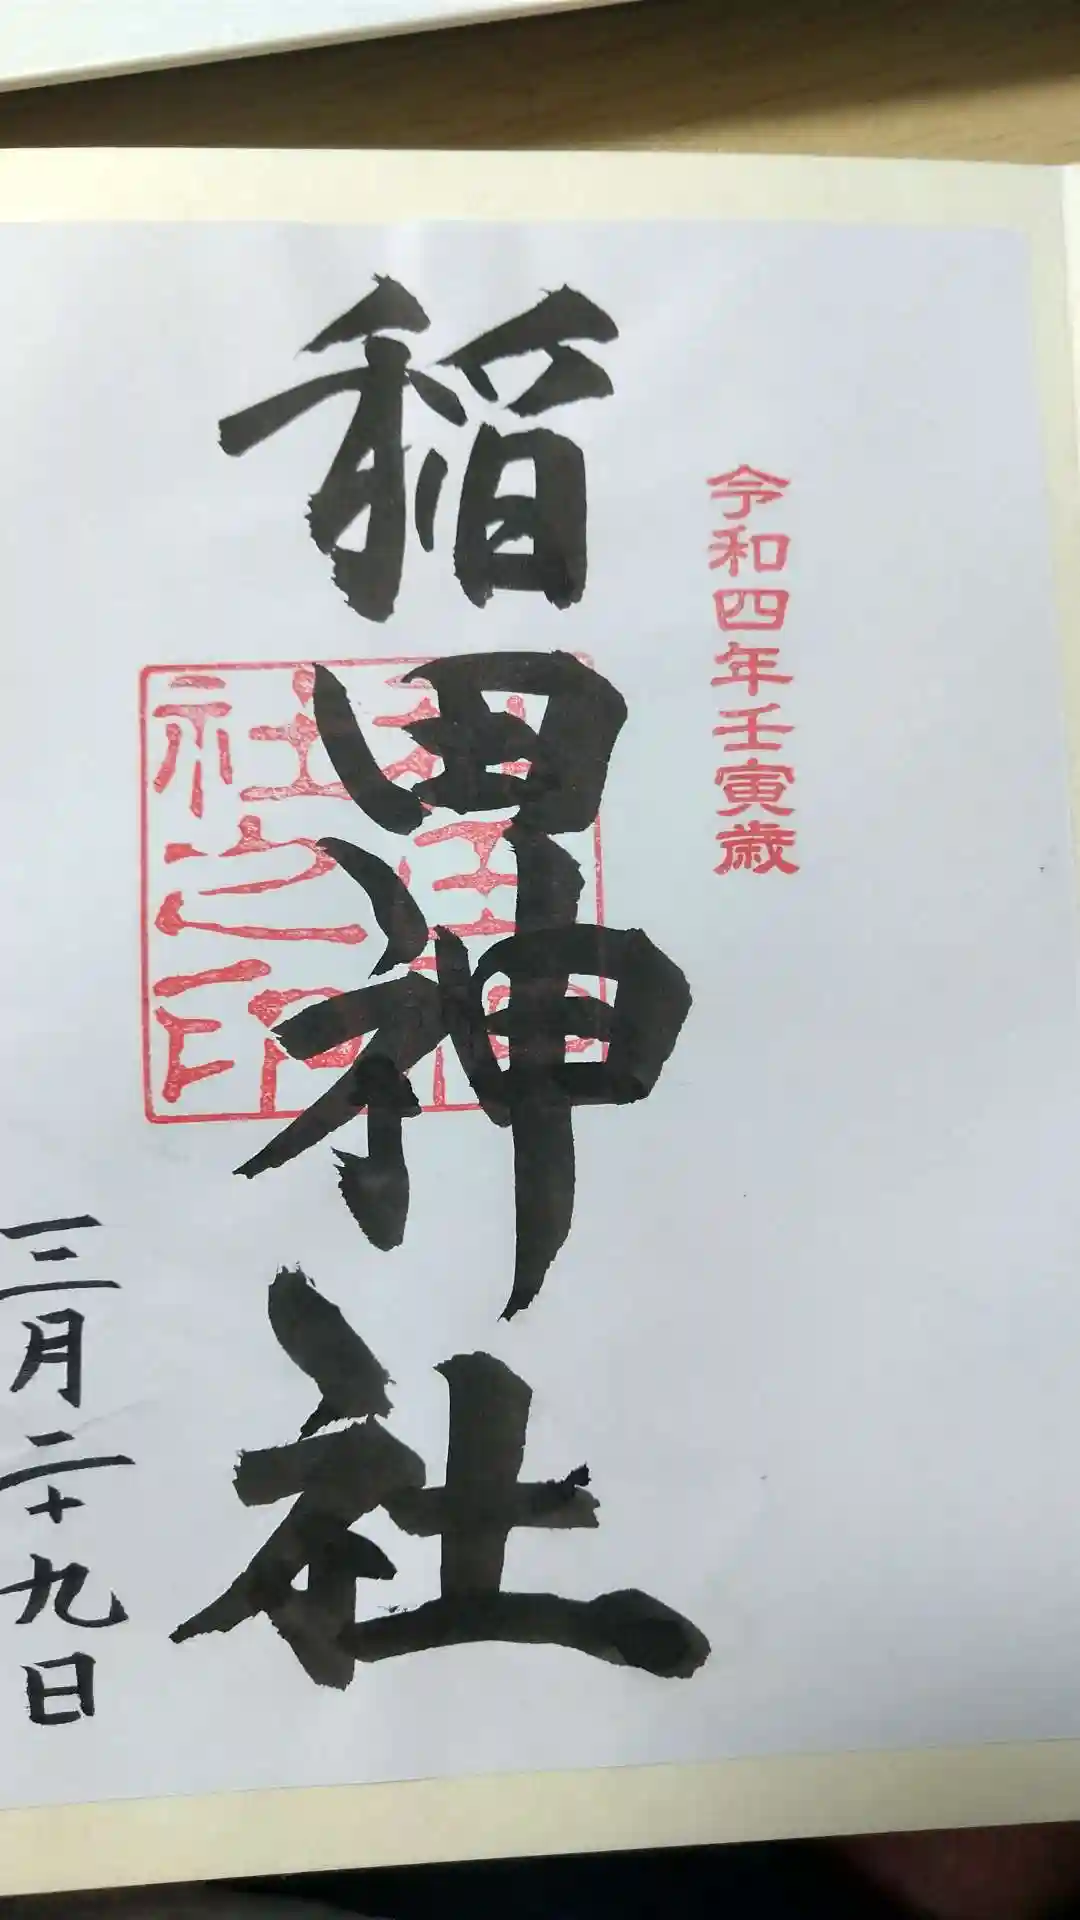 令和四年壬寅歳
稲田神社
稲田神
社之印
三月二十九日